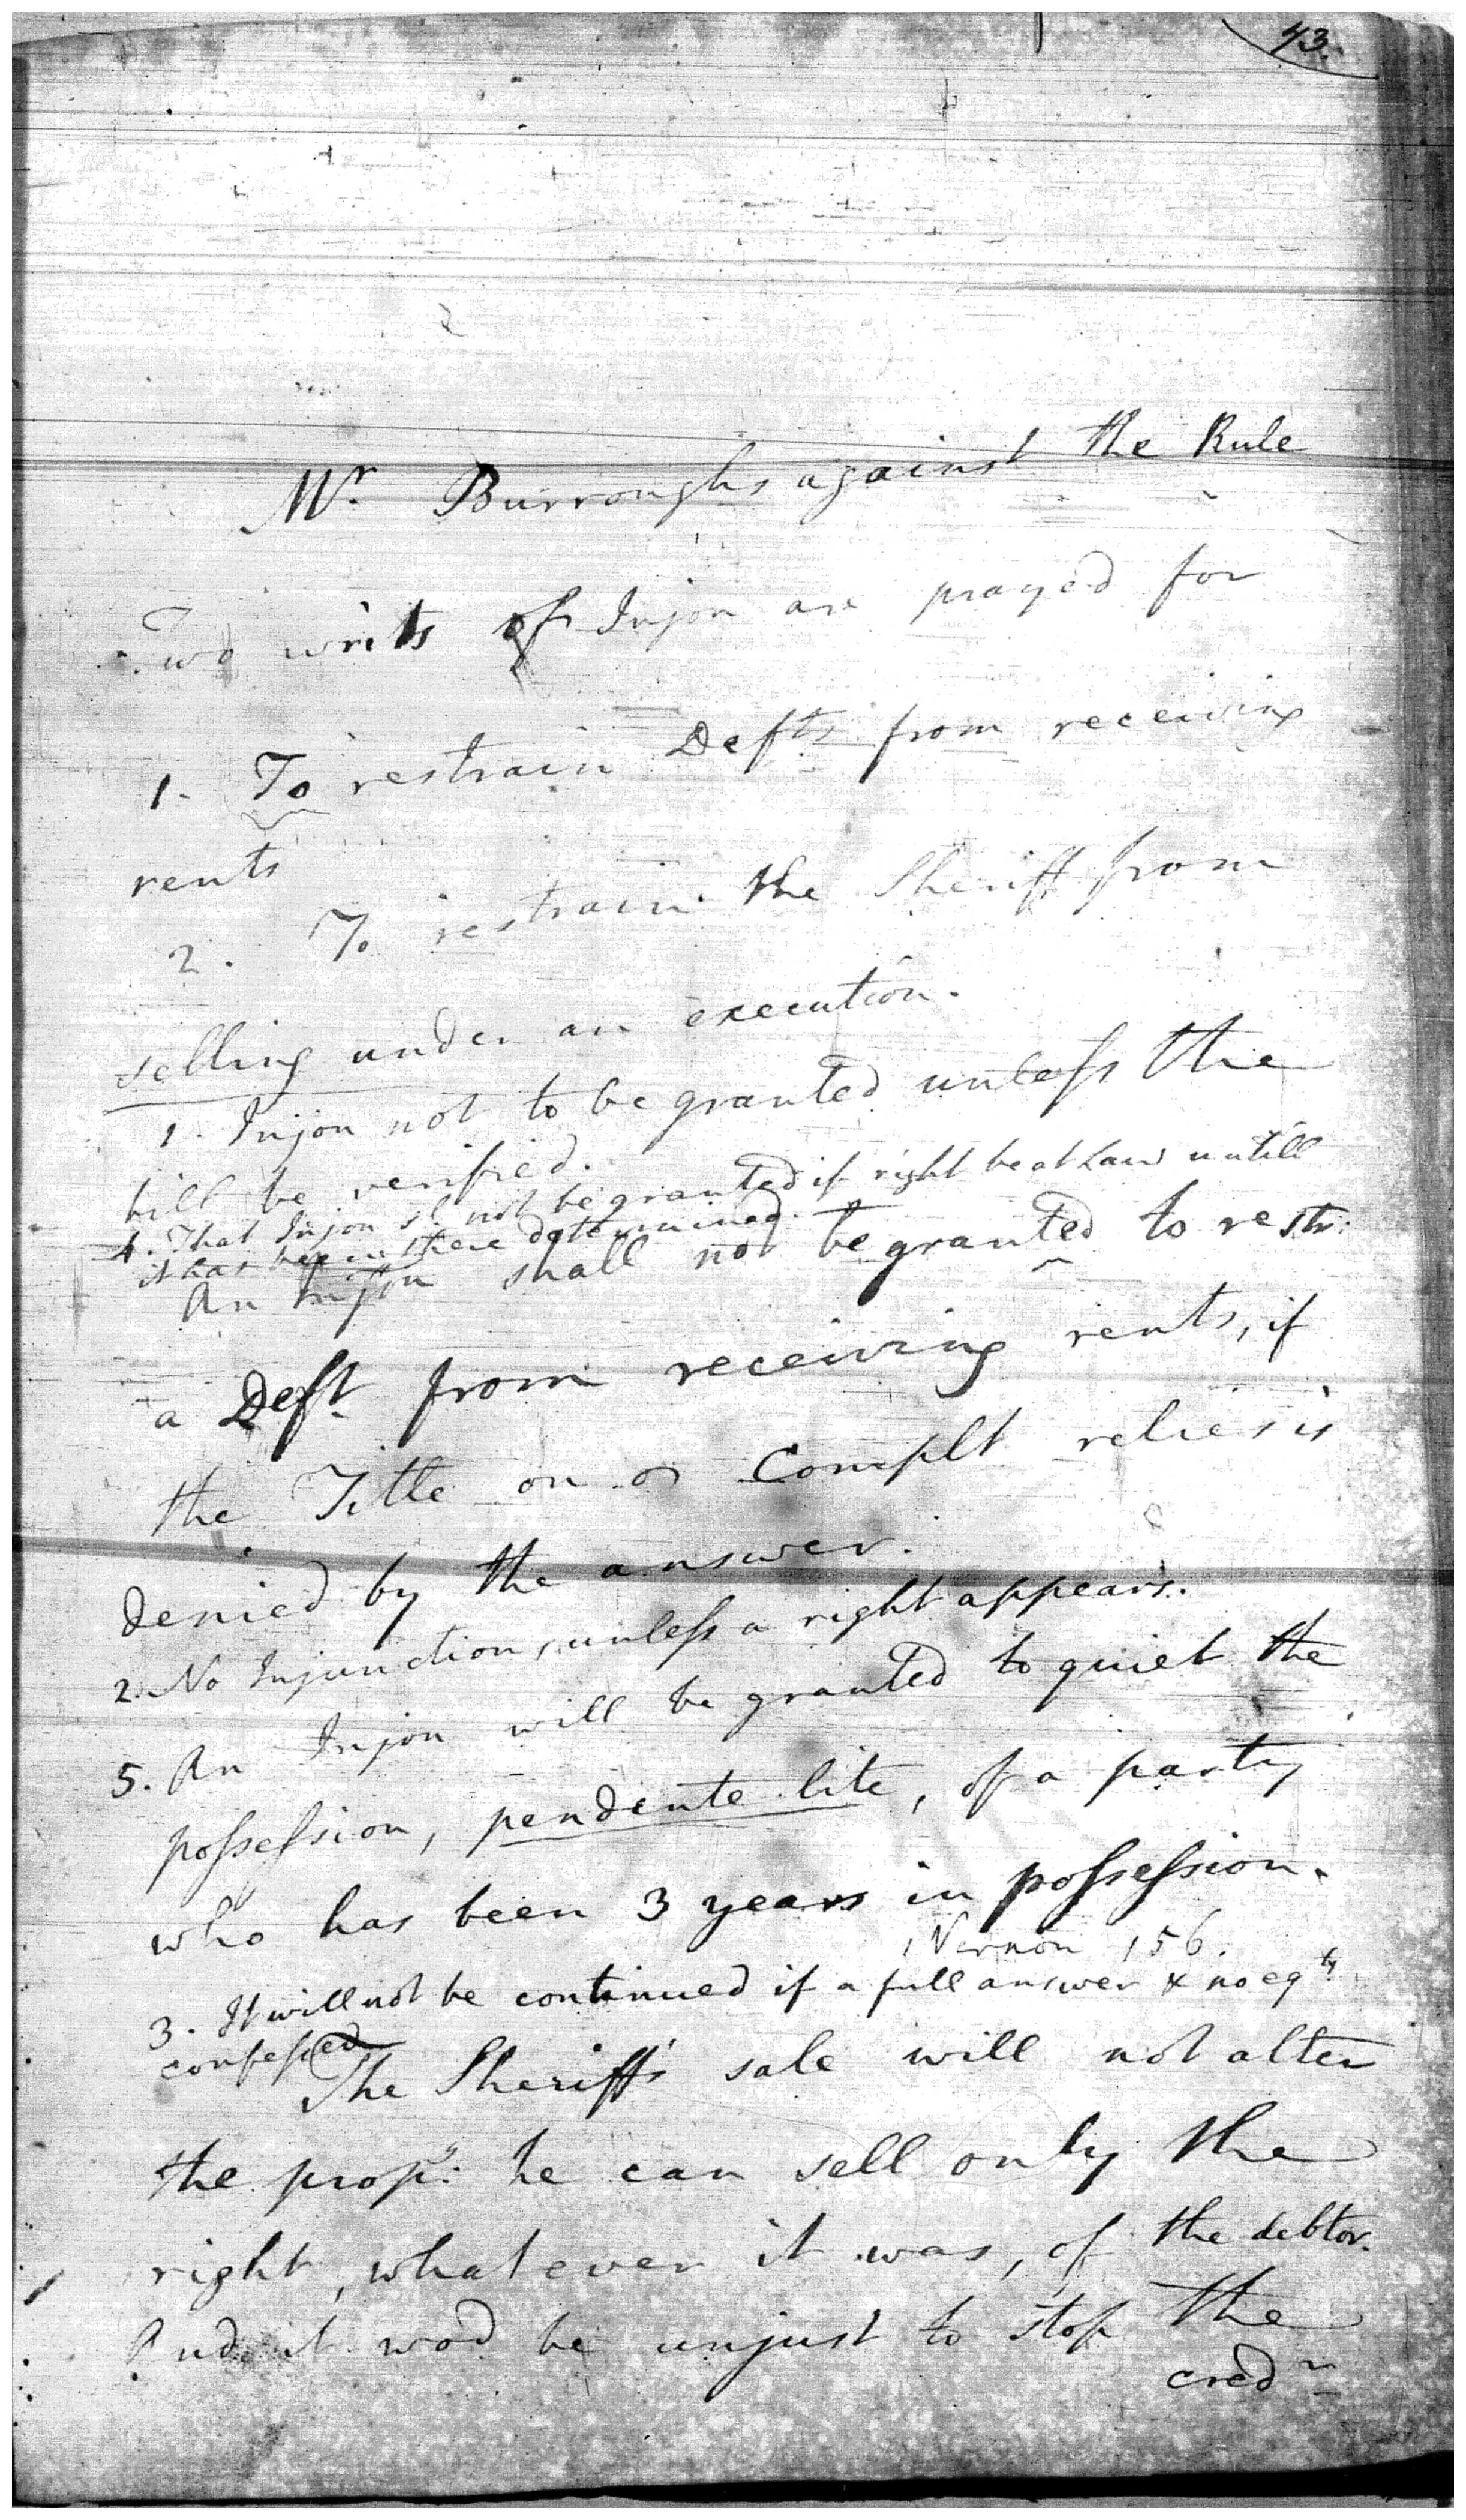 43.
Mr. Burroughs against the Rule
Two writs of Injon are prayed for
1. To restrain Defts from receiving
rents
2. To restrain the Sheriff from
selling under an execution.
1. Injon not to be granted unless the
bill be verified.
4. That Injon sl not be granted if right be at Law untill
it has been there determined.
An Injon shall not be granted to restr:
a Deft from receiving rents, if
the Title on Complt relies is
denied by the answer.
2. No Injunction, unless a right appears.
5. An Injon will be granted to quiet the
possession, pendente lite, of a party
who has been 3 years in possession.
1 Vernon 156.
3. It will not be continued if a full answer & no eqty
confessed
The Sheriff's sale will not alter
the propy: he can sell only the
right, whatever it was, of the debtor.
And it wod be unjust to stop the
credr